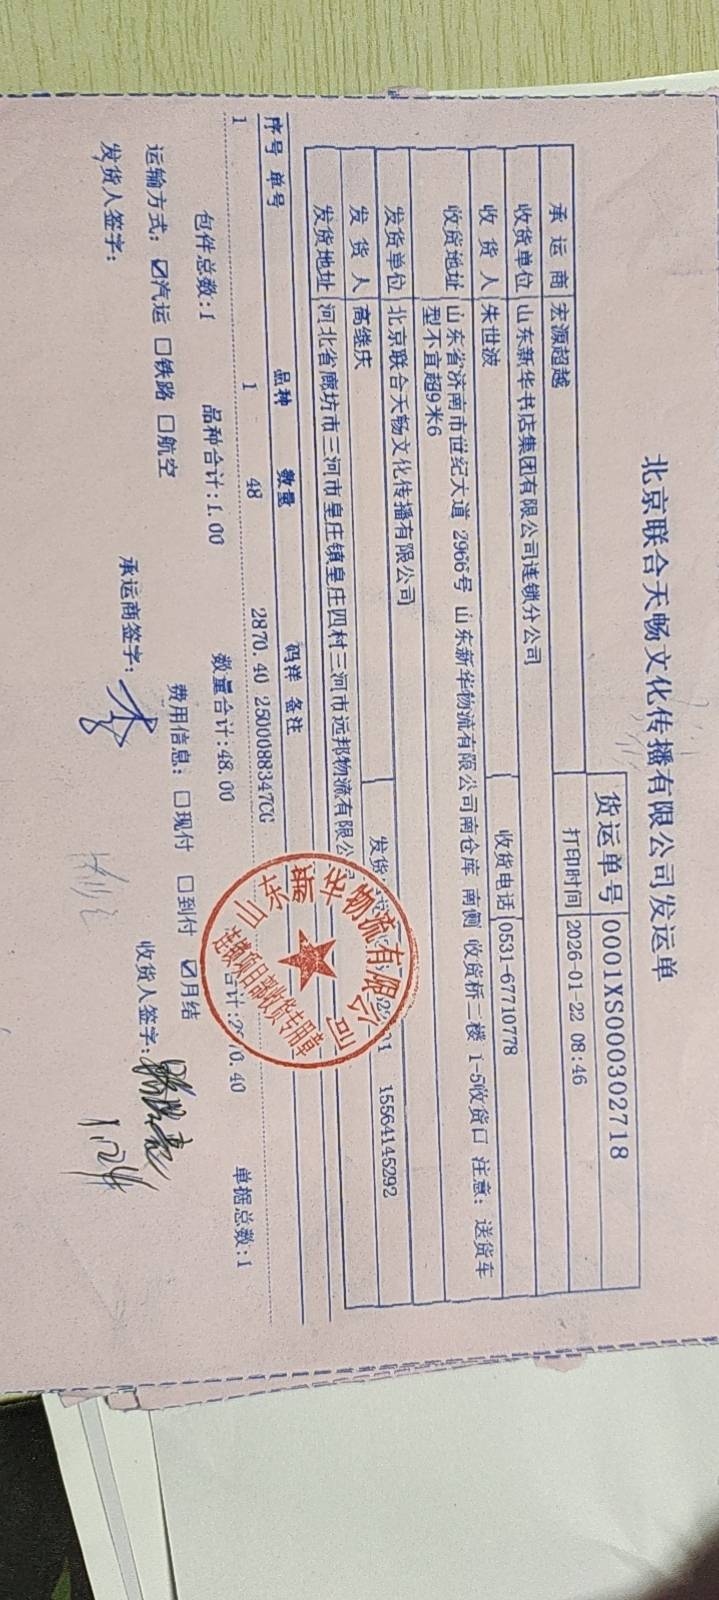 北京联合天畅文化传播有限公司发运单
货运单号 0001XS000302718
承运商 宏源超越 打印时间 2026-01-22 08:46
收货单位 山东新华书店集团有限公司连锁分公司
收货人 朱世波 收货电话 0531-67710778
收货地址 山东省济南市世纪大道 2966号 山东新华物流有限公司南仓库 南侧 收货桥二楼 1-5收货口 注意: 送货车
型不宜超9米6
发货单位 北京联合天畅文化传播有限公司
发货人 高继庆 发货 15564145292
发货地址 河北省廊坊市三河市皇庄镇皇庄四村三河市远邦物流有限公
序号 单号 品种 数量 码洋 备注
1 1 48 2870.40 2500088347CG
包件总数:1 品种合计:1.00 数量合计:48.00 合计: 单据总数:1
运输方式: ☑汽运 ☐铁路 ☐航空 费用信息: ☐现付 ☐到付 ☑月结
发货人签字: 承运商签字: 李 收货人签字:
山东新华物流有限公司
连锁项目部收货专用章